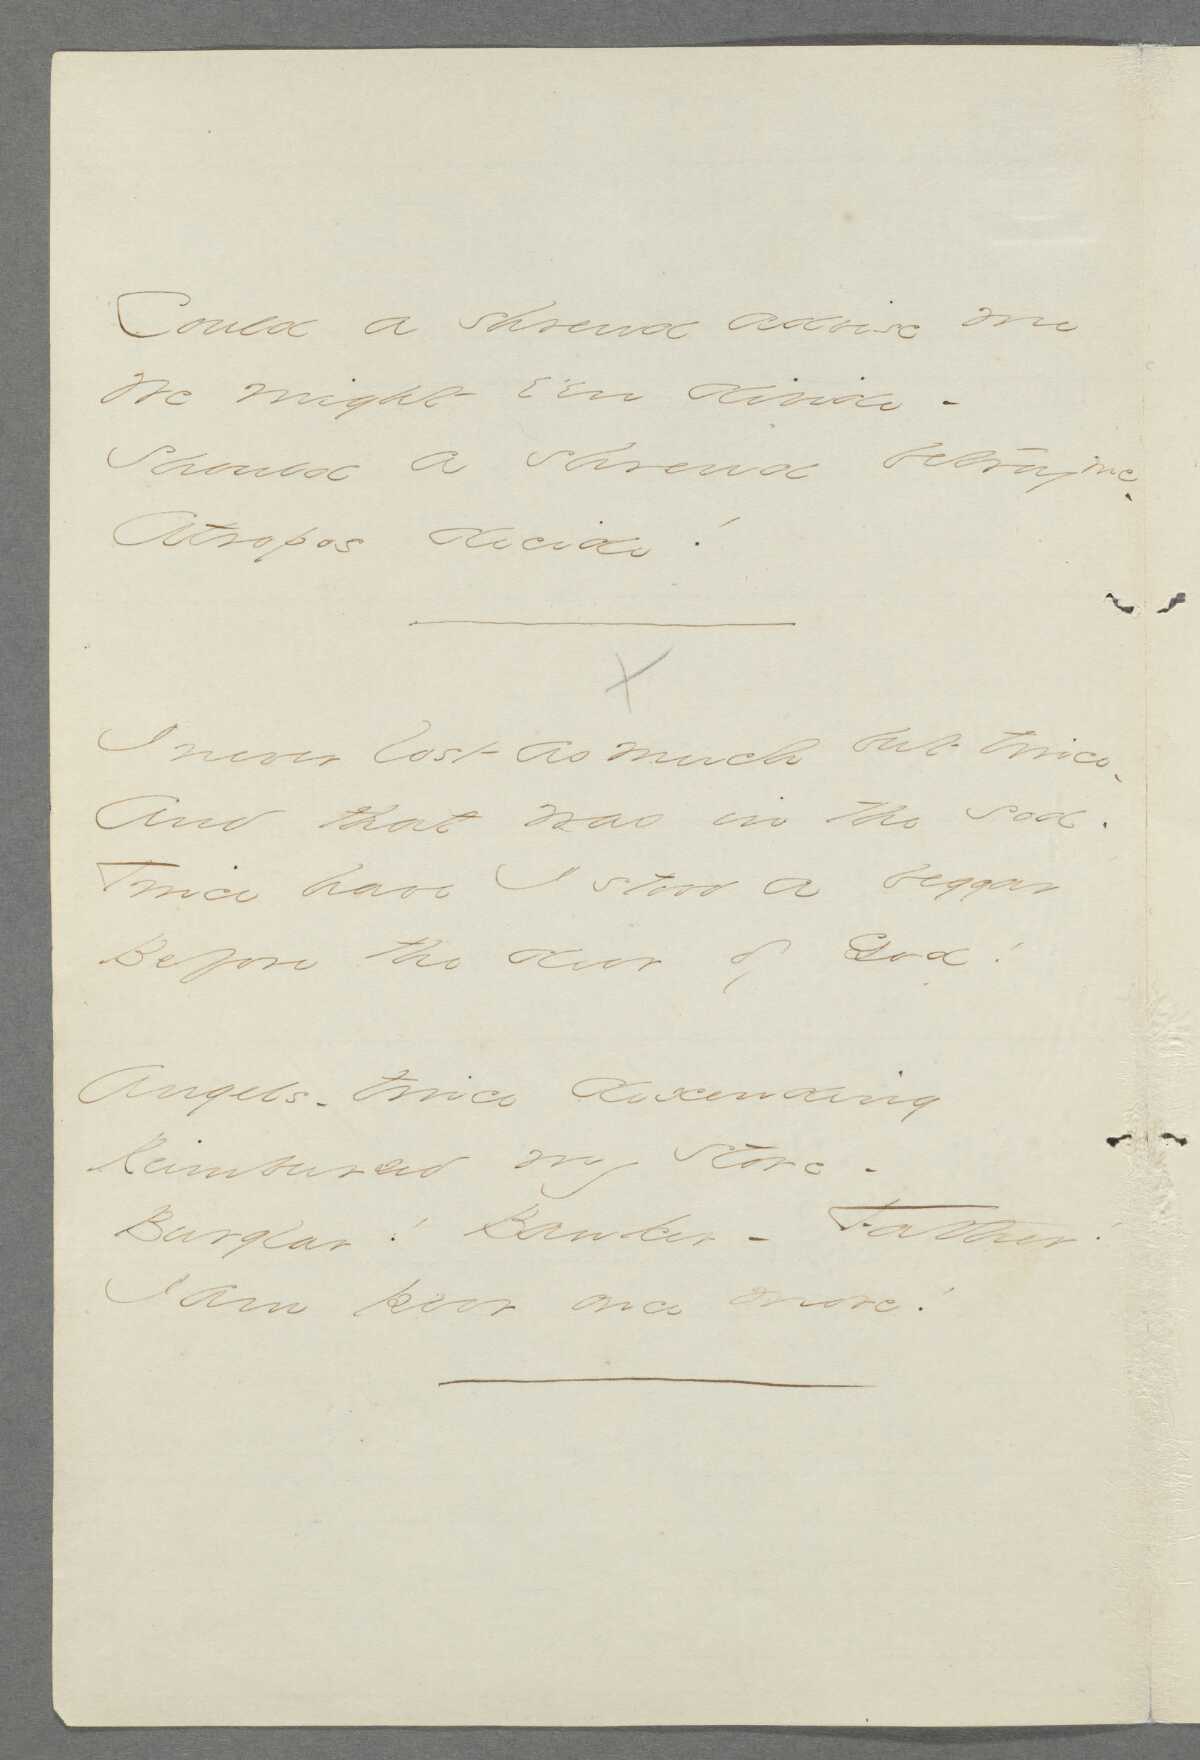 Could a shrewd advise me
We might e'en divide -
Should a shrewd betray me -
Atropos decide!
X
I never lost as much but twice -
And that was in the sod.
Twice have I stood a beggar
Before the door of God!
Angels - twice descending
Reimbursed my store -
Burglar! Banker - Father!
I am poor once more!